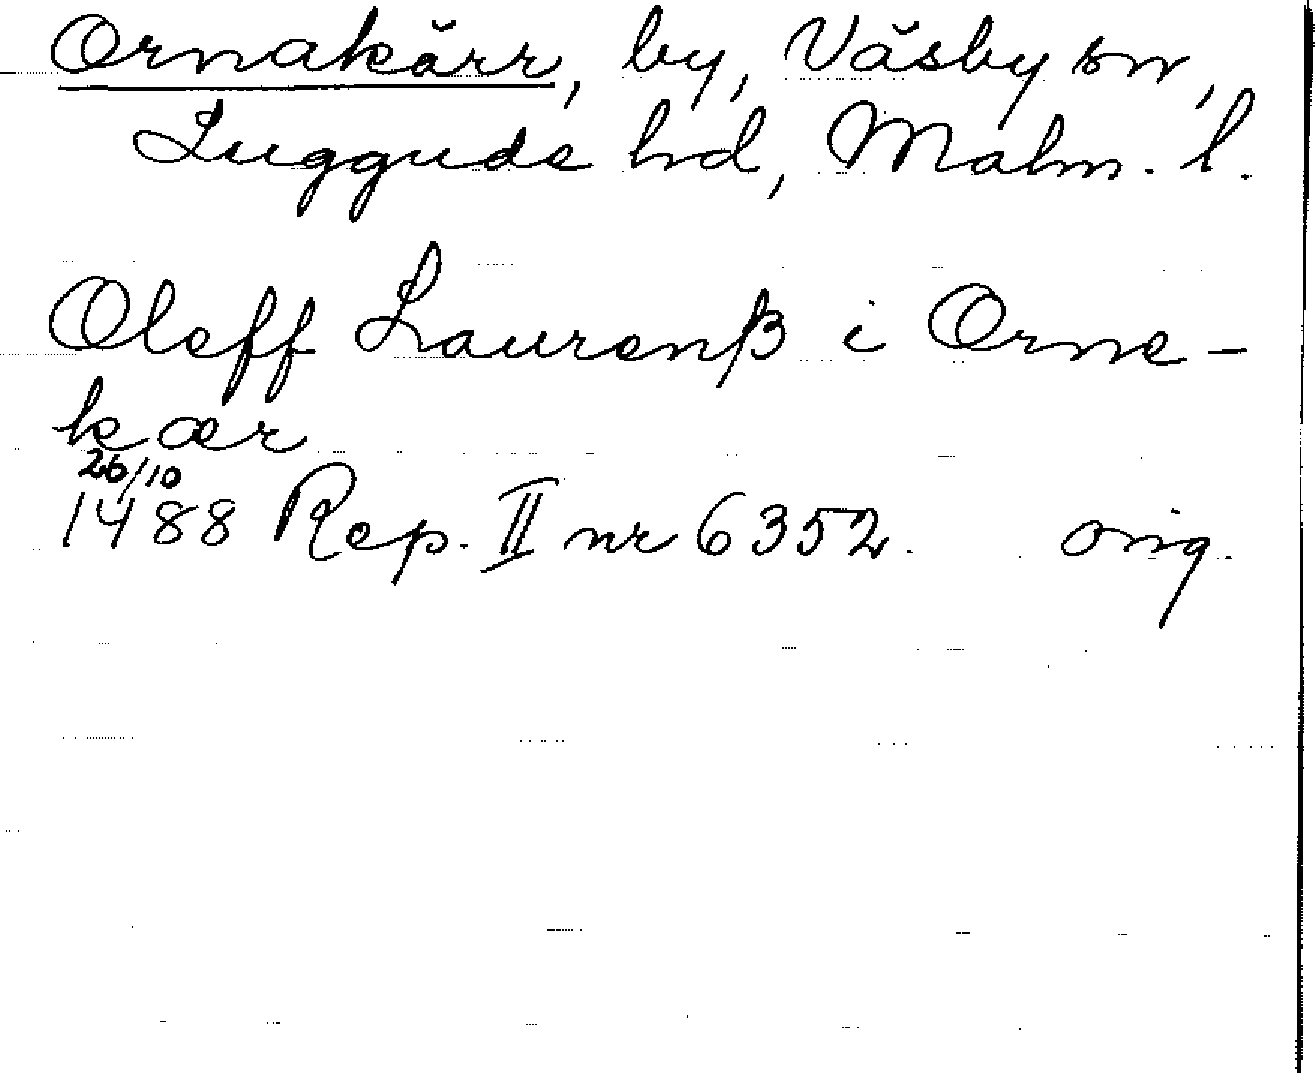 Ornakärr, by, Väsby sn,
Luggude hd, Malm. l.
Oleff Laurenß i Orne-
kær
26/10
1488 Rep. II nr 6352. orig.